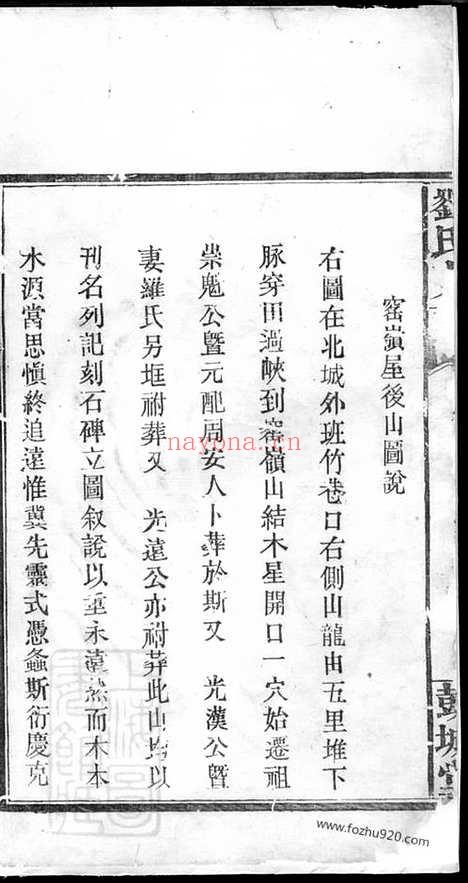 劉氏
彭城堂
窑嶺星後山圖說
右圖在北城外班竹巷口右側山龍由五里堆下
脉穿田過峽到窑嶺山結木星開口一穴始遷祖
崇魁公暨元配周安人卜葬於斯又 光漢公暨
妻羅氏另堆祔葬又 光遠公亦祔葬此山均以
刊名列記刻石碑立圖叙說以垂永遠然而木本
水源當思愼終追遠惟冀先靈式憑螽斯衍慶克
nayona.cn
www.fozhu920.com